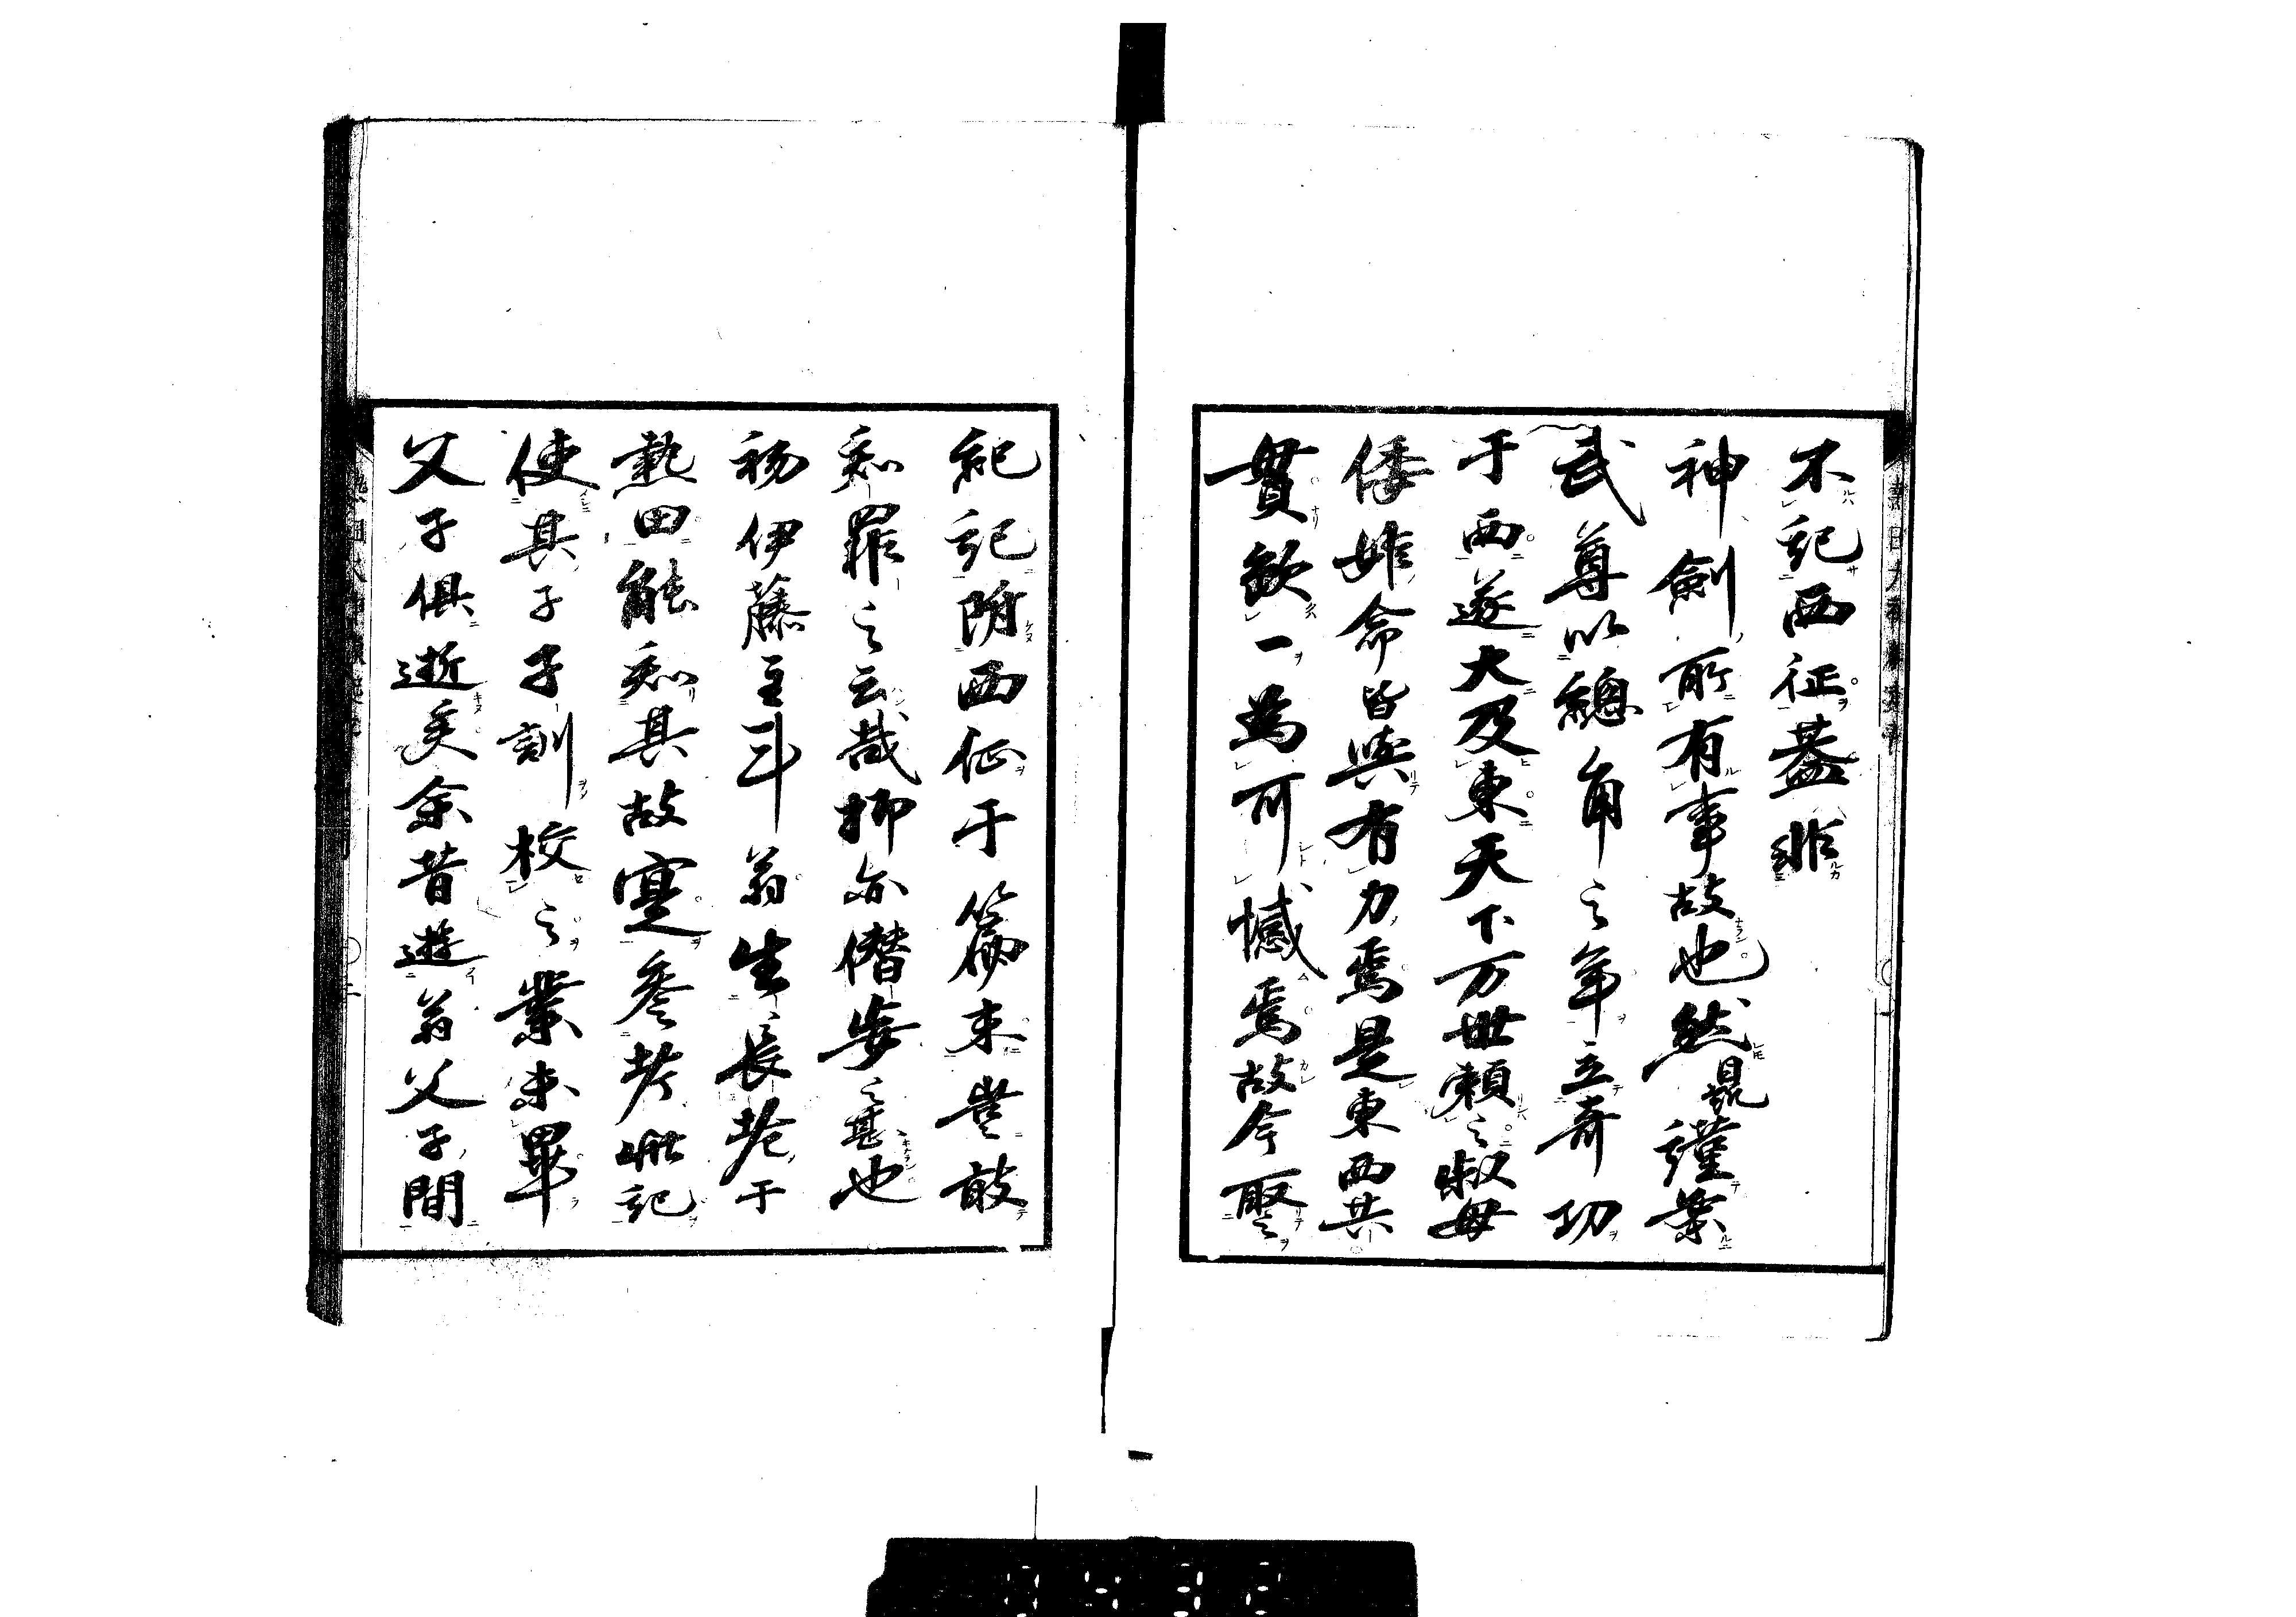 不記西征蓋非
神劍所有事故也然鼂謹案
武尊以總角之年立奇功
于西遂大及東天下万世頼之叔母
倭姫命皆與有力焉是東西共
貫欽一為可憾焉故今聖
紀記附西征于篇末豈敢
知罪之云哉抑亦僭妄之甚也
初伊藤主斗翁生長於于
熱田能知其故寔參考此記
使其子子訓校之業未畢
父子俱逝矣余昔遊翁父子間